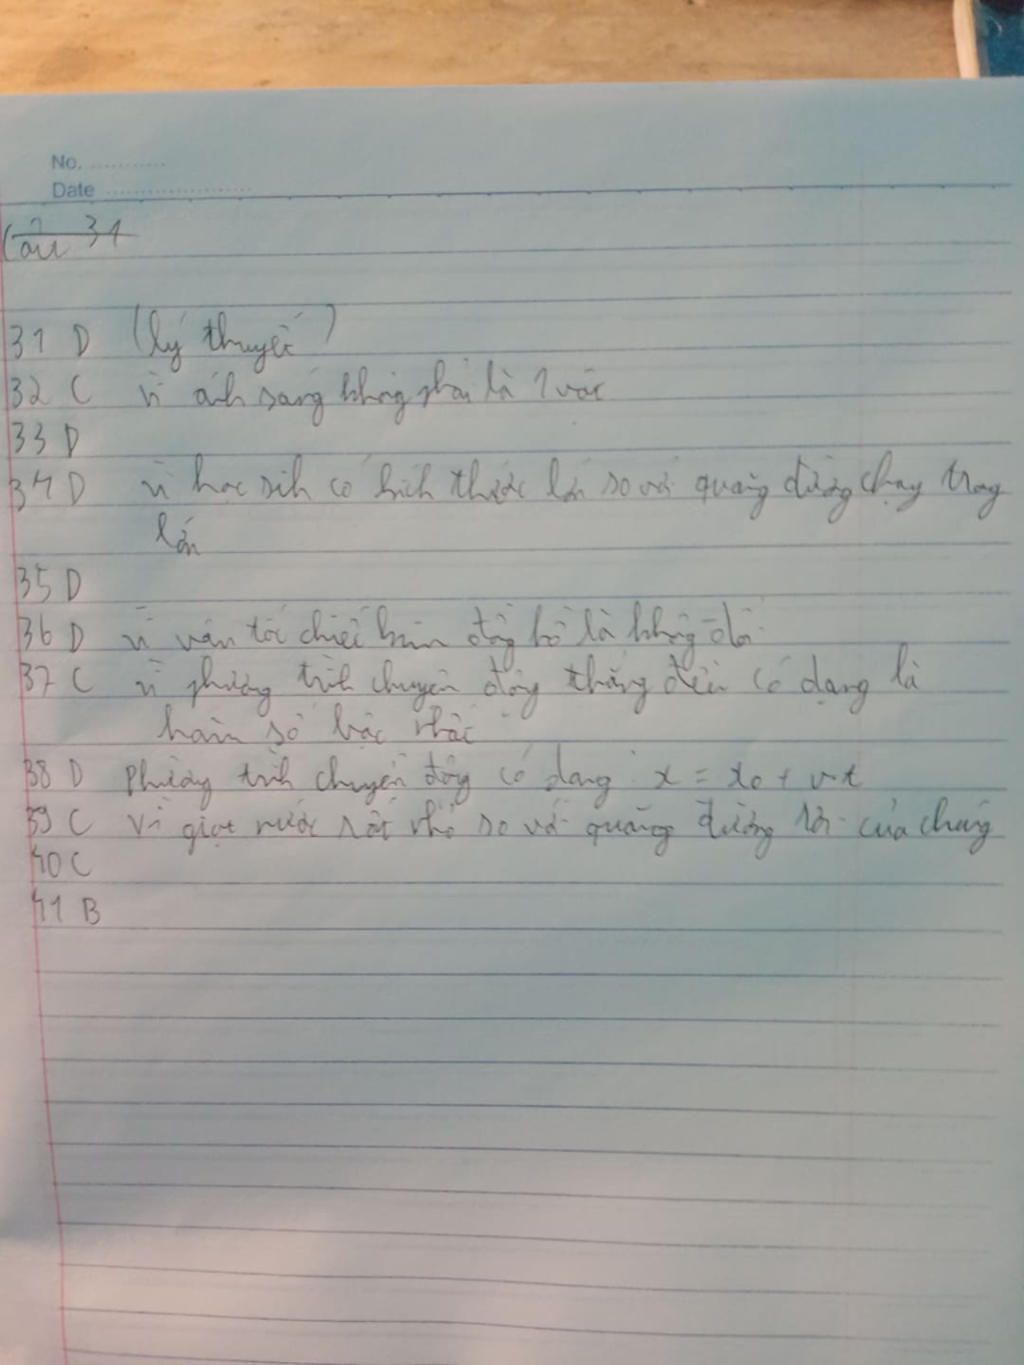 No. ............
Date .......................
Câu 31
31 D (lý thuyết)
32 C vì ánh sáng không phải là 1 vật
33 D
34 D vì học sinh có kích thước lớn so với quãng đường chạy trong
lớn
35 D
36 D vì vận tốc chiếc kim đồng hồ là không đổi
37 C vì phương trình chuyển động thẳng đều có dạng là
hàm số bậc nhất
38 D Phương trình chuyển động có dạng x = x0 + v.t
39 C Vì giọt nước rất nhỏ so với quãng đường rơi của chúng
40 C
41 B